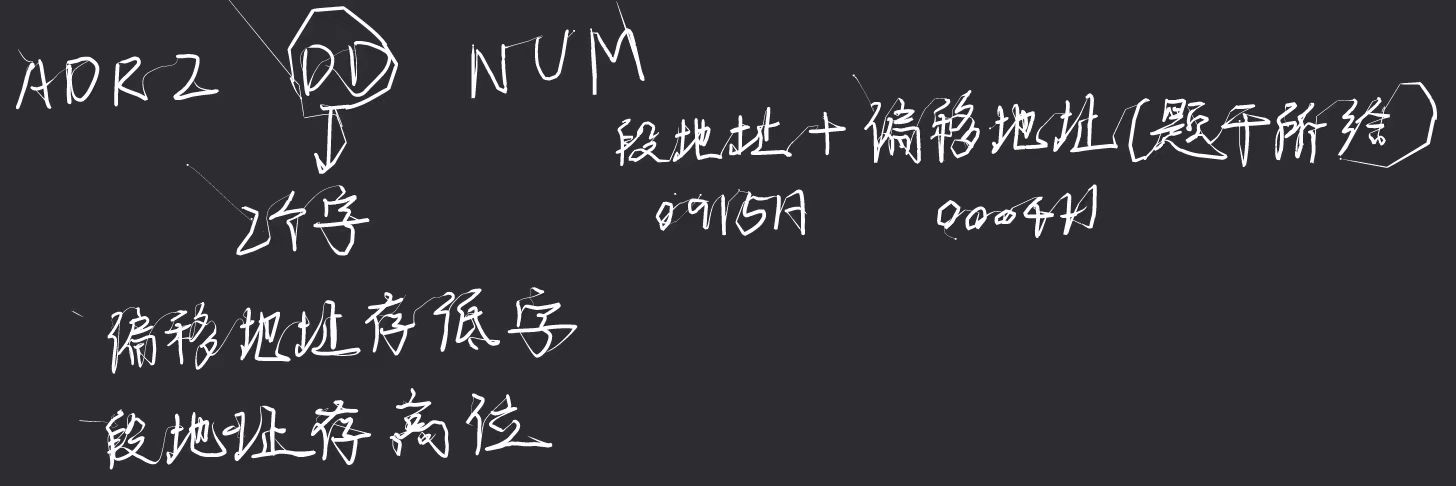 ADR2 DD NUM
段地址+偏移地址(题干所给)
2个字 0915H 0004H
偏移地址存低字
段地址存高位